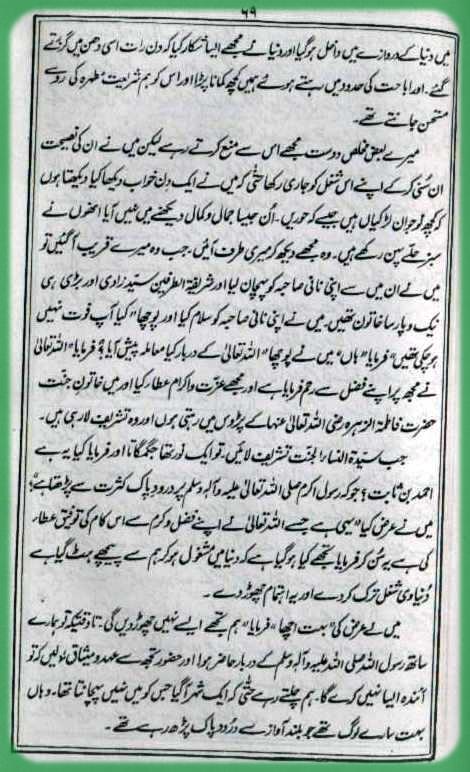 ۶۹
میں دنیا کے دروازے میں داخل ہو گیا اور دنیا نے مجھے ایسا شکار کیا کہ دن رات اسی دھن میں گزرتے
گئے۔ اور اباحت کی حدود میں رہتے ہوئے ہمیں کچھ کمانا پڑا اور اس کو ہم شریعت مطہرہ کی رو سے
مستحسن جانتے تھے۔
میرے بعض مخلص دوست مجھے اس سے منع کرتے رہے لیکن میں نے ان کی نصیحت
ان سنی کر کے اپنے اس شغل کو جاری رکھا حتیٰ کہ میں نے ایک دن خواب دیکھا کیا دیکھتا ہوں
کہ کچھ نوجوان لڑکیاں ہیں جیسے کہ حوریں۔ ان جیسا جمال و کمال دیکھنے میں نہیں آیا انھوں نے
سبز حلے پہن رکھے ہیں۔ وہ مجھے دیکھ کر میری طرف آئیں جب وہ میرے قریب آگئیں تو
میں نے ان میں سے اپنی نانی صاحبہ کو پہچان لیا اور شریفۃ الطرفین سیّدزادی اور بڑی ہی
نیک و پارسا خاتون تھیں۔ میں نے اپنی نانی صاحبہ کو سلام کیا اور پوچھا "کیا آپ فوت نہیں
ہو چکی تھیں" فرمایا "ہاں" میں نے پوچھا "اللہ تعالیٰ کے دربار کیا معاملہ پیش آیا؟ فرمایا "اللہ تعالیٰ
نے مجھ پر اپنے فضل سے رحم فرمایا ہے اور مجھے عزت و اکرام عطا کیا اور میں خاتونِ جنّت
حضرت فاطمۃ الزہرہ رضی اللہ تعالیٰ عنہا کے پڑوس میں رہتی ہوں اور وہ تشریف لا رہی ہیں۔
جب سیّدۃ النساء الجنت تشریف لائیں، تو ایک نور تھا جگمگاتا اور فرمایا کیا یہ ہے
احمد بن ثابت؟ جو کہ رسول اکرم صلی اللہ تعالیٰ علیہ وآلہ وسلم پر درود پاک کثرت سے پڑھتا ہے؟
میں نے عرض کیا "یہی ہے جسے اللہ تعالیٰ نے اپنے فضل و کرم سے اس کام کی توفیق عطا کر
کی ہے یہ سُن کر فرمایا تجھے کیا ہو گیا ہے کہ دنیا میں مشغول ہو کر ہم سے پیچھے ہٹ گیا ہے
دُنیاوی شغل ترک کر دے اور یہ اہتمام چھوڑ دے۔
میں نے عرض کی "بہت اچھا" فرمایا "ہم تجھے ایسے نہیں چھوڑ دیں گی۔ تاوقتیکہ تو ہمارے
ساتھ رسول اللہ صلی اللہ علیہ وآلہ وسلم کے دربار حاضر ہو اور حضور تجھ سے عہد و میثاق نہ لیں کہ تو
آئندہ ایسا نہیں کرے گا۔ ہم چلتے رہے حتّٰی کہ ایک شہر آ گیا جس کو میں نہیں پہچانتا تھا۔ وہاں
بہت سارے لوگ تھے جو بلند آواز سے درود پاک پڑھ رہے تھے۔